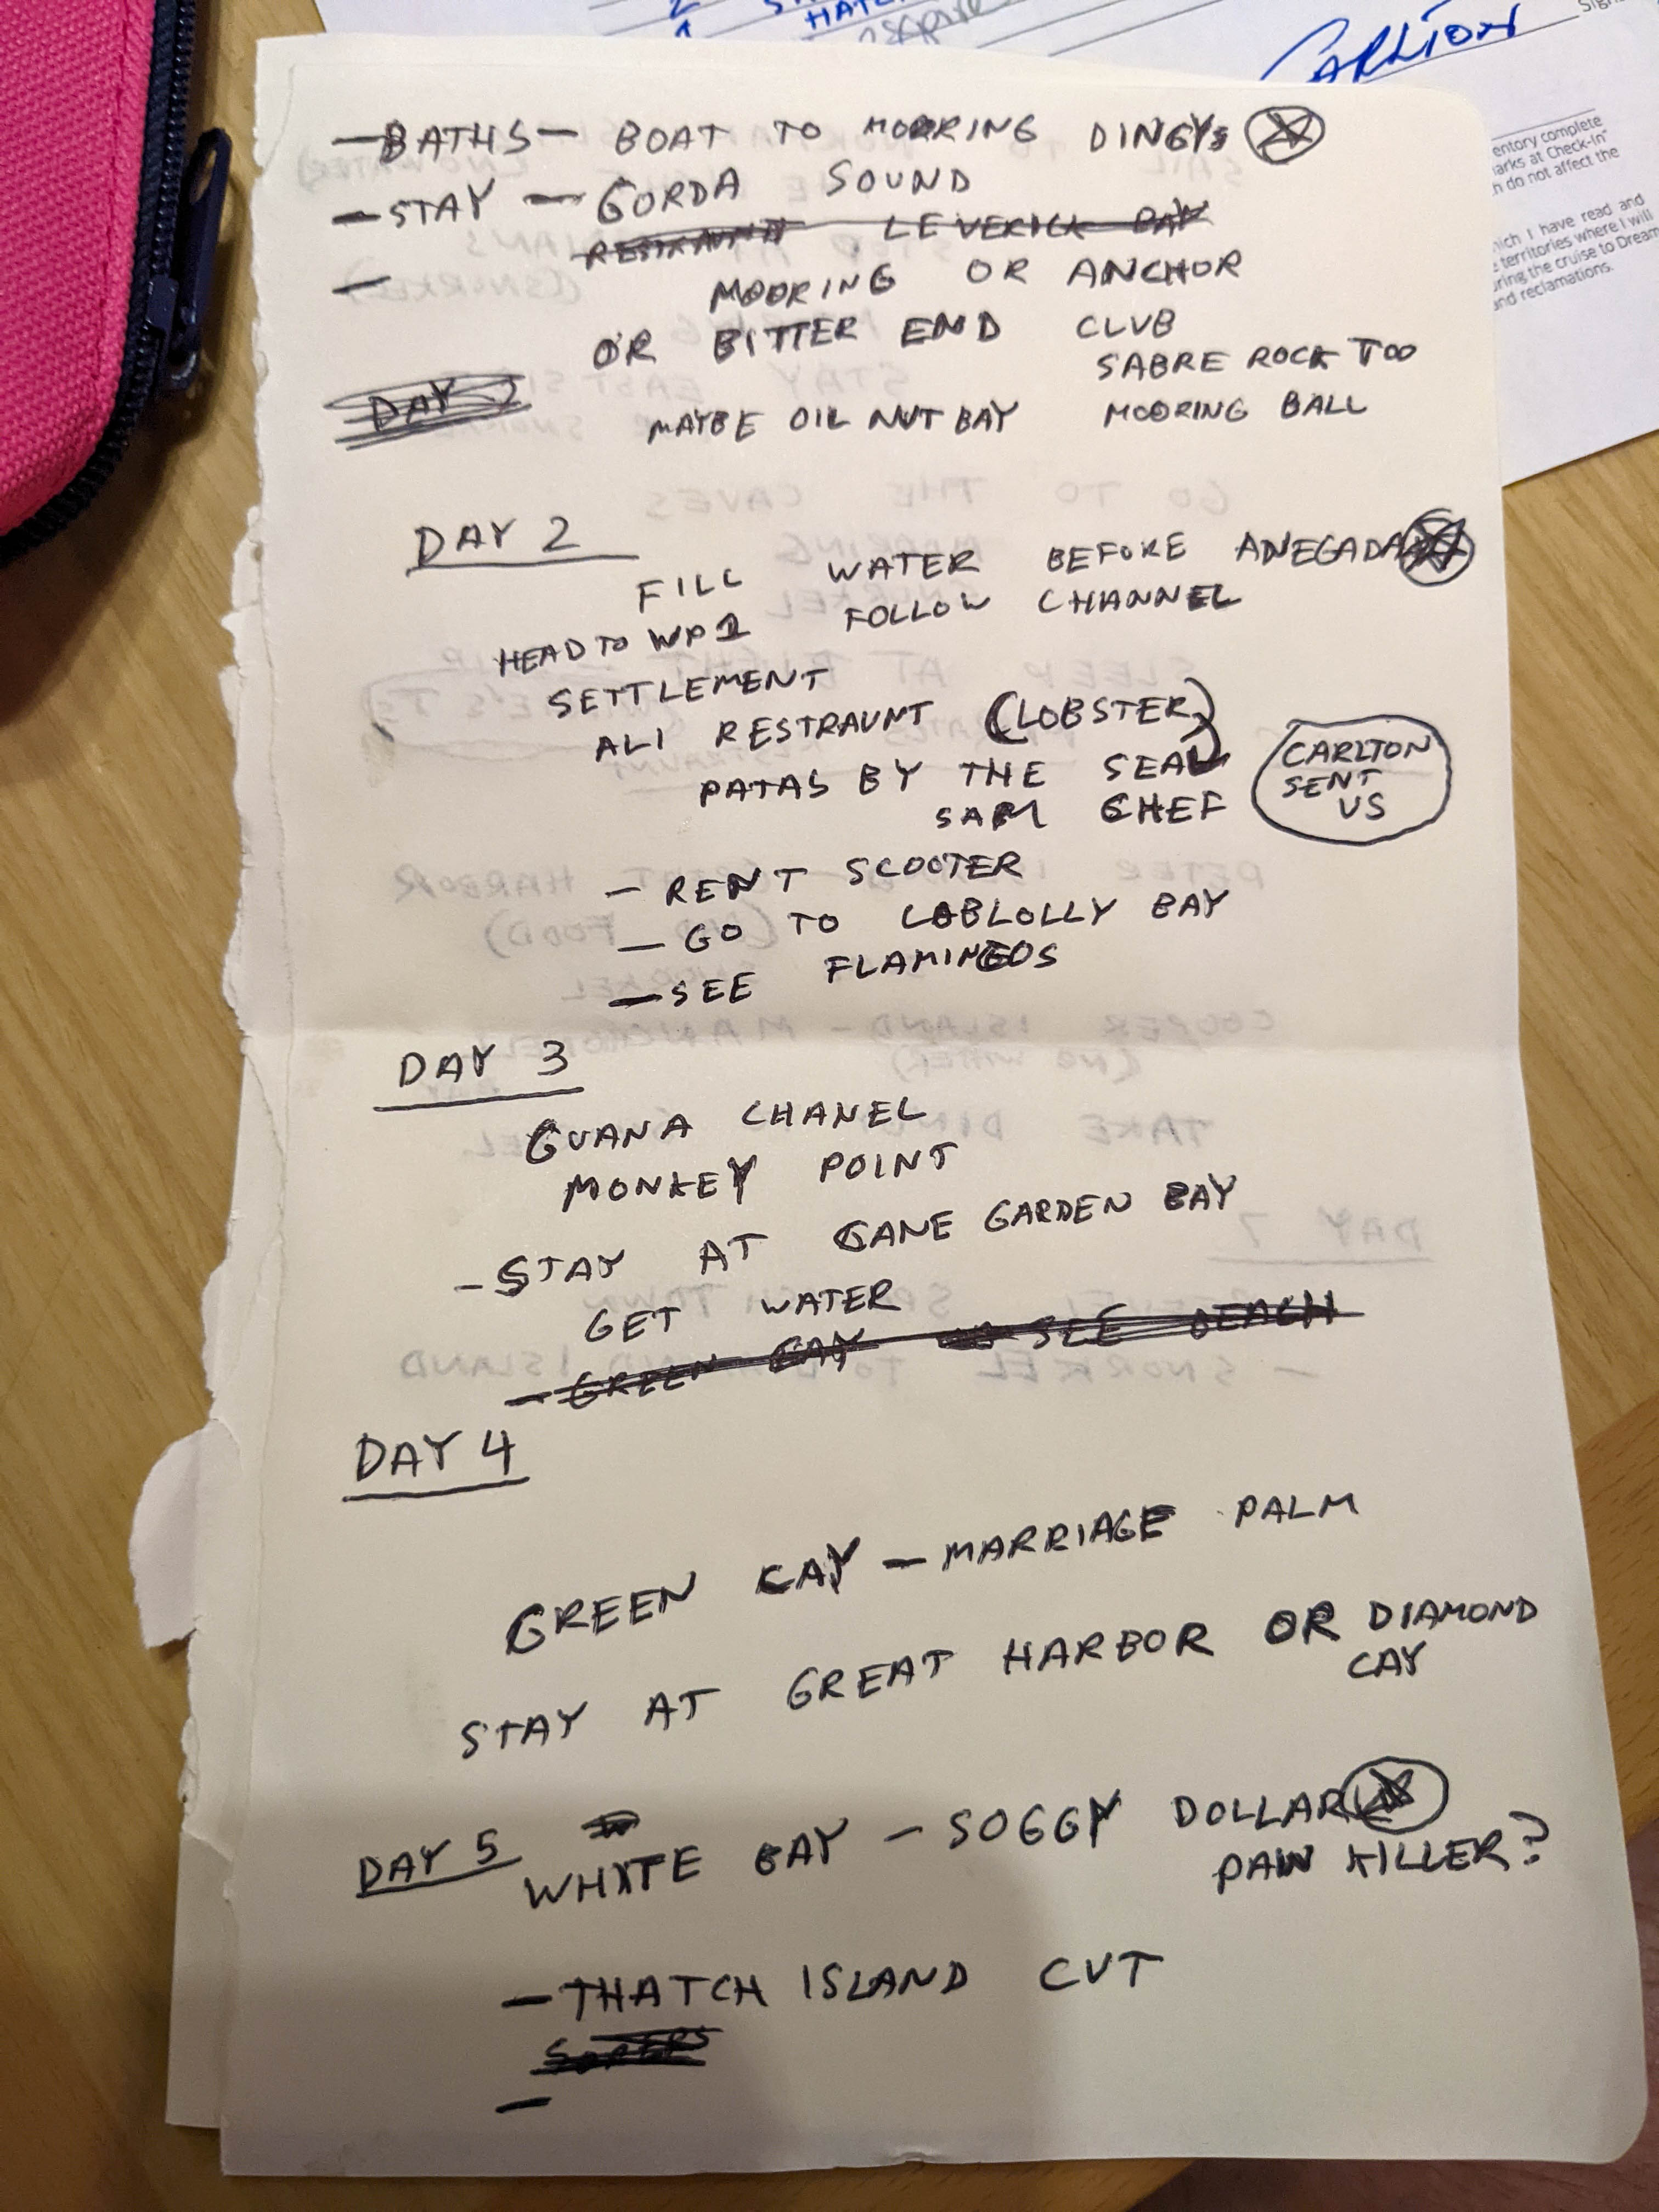 HATC
CARLTON
entory complete
arks at Check-In"
n do not affect the
hich I have read and
territories where I will
ring the cruise to Dream
and reclamations.
—BATHS— BOAT TO MOORING DINGYS
—STAY — GORDA SOUND
RESTRAUNT LEVERICK BAY
—
MOORING OR ANCHOR
OR BITTER END CLUB
SABRE ROCK TOO
DAY 2
MAYBE OIL NUT BAY MOORING BALL
DAY 2
FILL WATER BEFORE ANEGADA
HEAD TO WP1 FOLLOW CHANNEL
SETTLEMENT
ALI RESTRAUNT (LOBSTER)
PATAS BY THE SEA
SAM CHEF
CARLTON
SENT
US
— RENT SCOOTER
— GO TO LOBLOLLY BAY
—SEE FLAMINGOS
DAY 3
GUANA CHANEL
MONKEY POINT
—STAY AT CANE GARDEN BAY
GET WATER
—GREEN CAY SEE BEACH
DAY 4
GREEN CAY — MARRIAGE PALM
STAY AT GREAT HARBOR OR DIAMOND
CAY
DAY 5 WHITE BAY — SOGGY DOLLAR
PAIN KILLER?
—THATCH ISLAND CUT
SOPERS
—